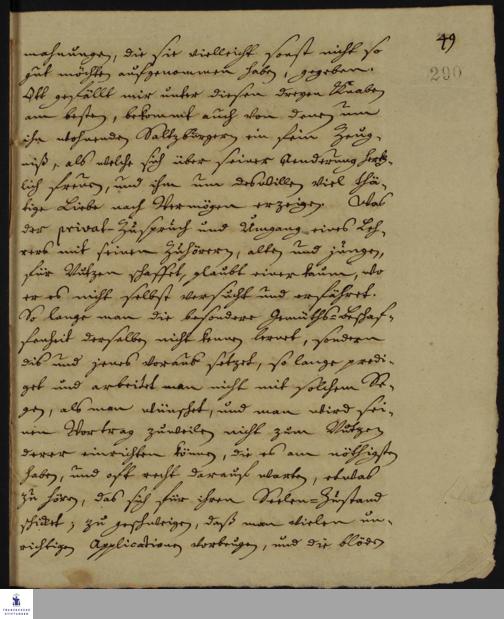 49
290
mahnungen, die sie vielleicht sonst nicht so
gut möchten aufgenommen haben, gegeben.
Ott gefällt mir unter diesen dreyen Knaben
am besten, bekommt auch von denen um
ihn wohnenden Saltzburgern ein fein Zeug-
niß, als welche sich über seiner Aenderung hertz-
lich freuen, und ihm um deswillen viel thä-
tige Liebe nach Vermögen erzeigen. Was
der privat-Zuspruch und Umgang eines Leh-
rers mit seinen Zuhörern, alten und jungen,
für Nutzen schaffet, glaubt einer kaum, wo
er es nicht selbst versucht und erfähret.
So lange man die besondere Gemüths-Beschaf-
fenheit derselben nicht kennen lernet, sondern
dis und jenes voraus setzet, so lange predi-
get und arbeitet man nicht mit solchem Se-
gen, als man wünschet, und man wird sei-
nen Vortrag zuweilen nicht zum Nutzen
derer einrichten können, die es am nöthigsten
haben, und oft recht darauf warten, etwas
zu hören, das sich für ihren Seelen-Zustand
schicket; zu geschweigen, daß man vielen un-
richtigen Applicationen vorbeugen, und die blöden
FRANCKESCHE
STIFTUNGEN